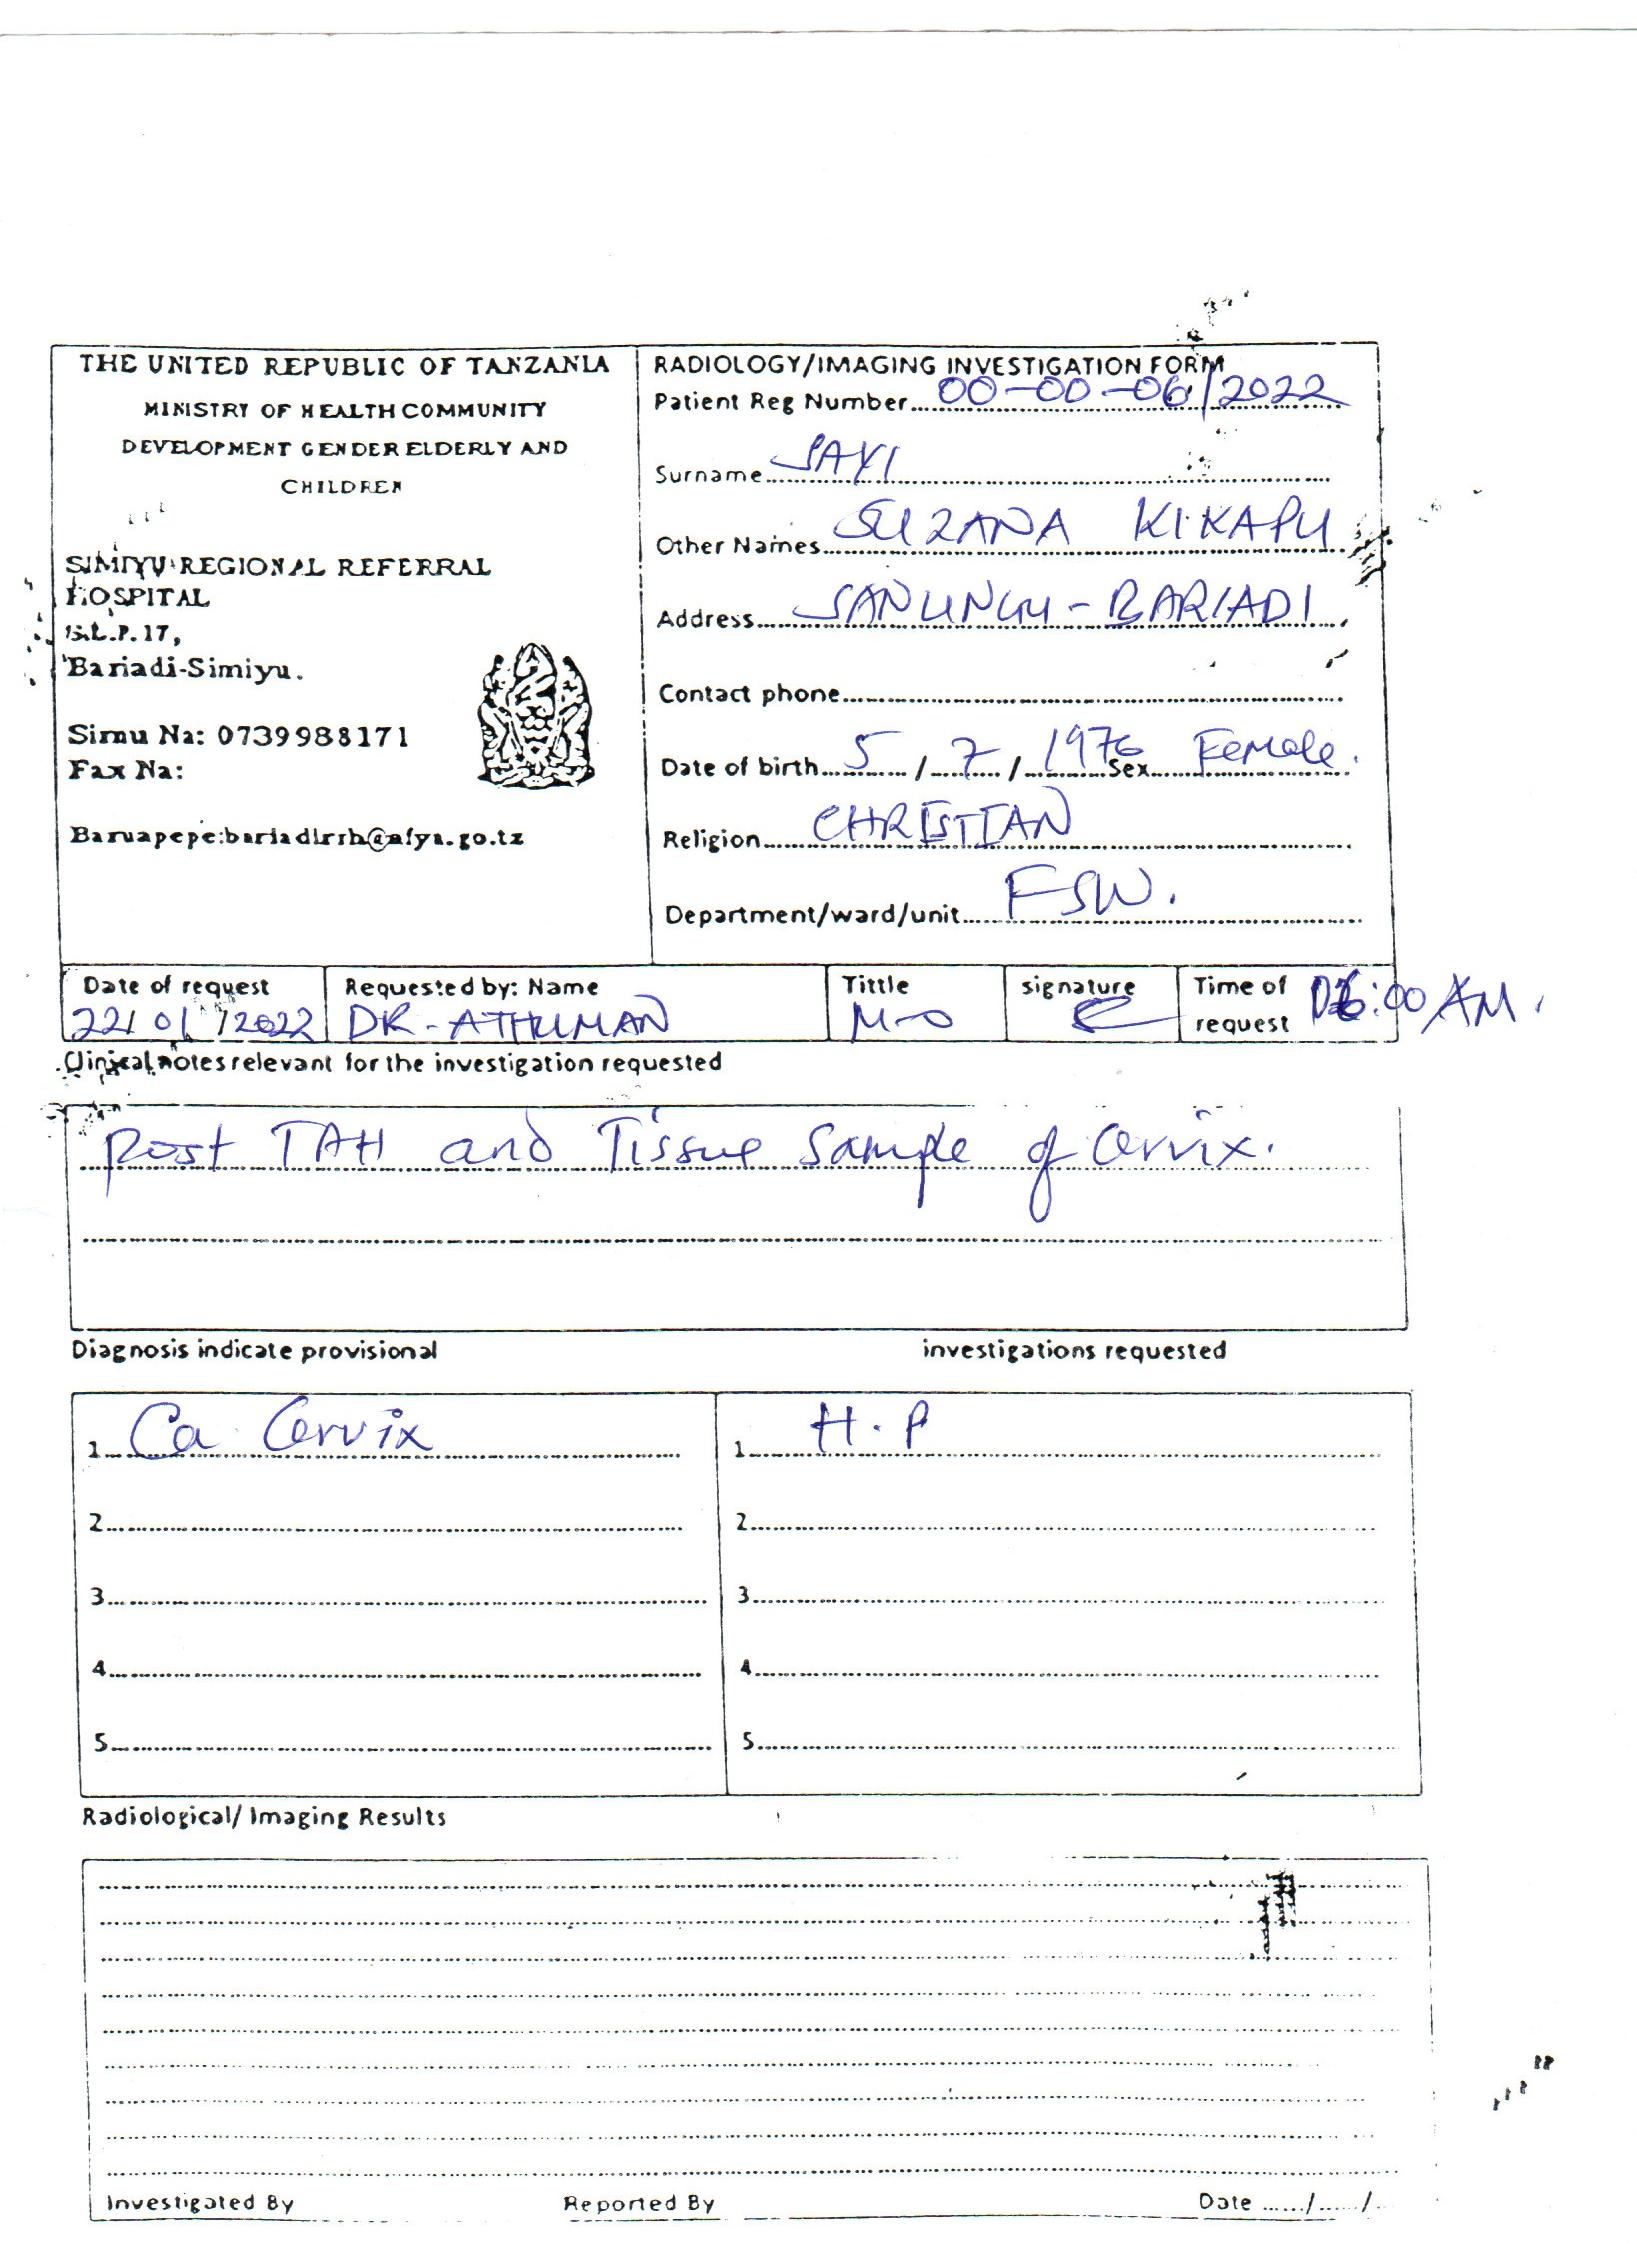 THE UNITED REPUBLIC OF TANZANIA
MINISTRY OF HEALTH COMMUNITY
DEVELOPMENT GENDER ELDERLY AND
CHILDREN
SIMIYU REGIONAL REFERRAL
HOSPITAL
S.L.P. 17,
Bariadi-Simiyu.
Simu Na: 0739988171
Fax Na:
Baruapepe:bariadirrh@afya.go.tz
RADIOLOGY/IMAGING INVESTIGATION FORM
Patient Reg Number 00-00-06/2022
Surname SAYI
Other Names SUZANA KIKAPU
Address SANUNGU - BARIADI
Contact phone
Date of birth 5 / 7 / 1976 Sex Female.
Religion CHRISTIAN
Department/ward/unit FSW.
Date of request Requested by: Name Tittle signature Time of request
22/01/2022 DR-ATHUMAN M-O :00 AM.
Clinical notes relevant for the investigation requested
Post TAH and Tissue Sample of Cervix.
Diagnosis indicate provisional investigations requested
1 Ca Cervix 1 H.P
2 2
3 3
4 4
5 5
Radiological/ Imaging Results
Investigated By Reported By Date ....../....../